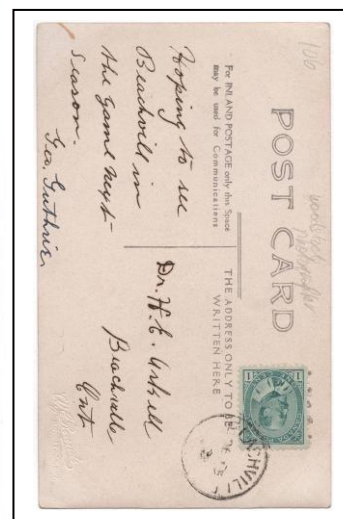 POST CARD
For INLAND POSTAGE only this Space
may be used for Communications
THE ADDRESS ONLY TO BE
WRITTEN HERE
Hoping to see
Beachvill in
the game next
season.
Geo. Guthrie
Dr. H. C.
Beachville
Ont
106
1 1